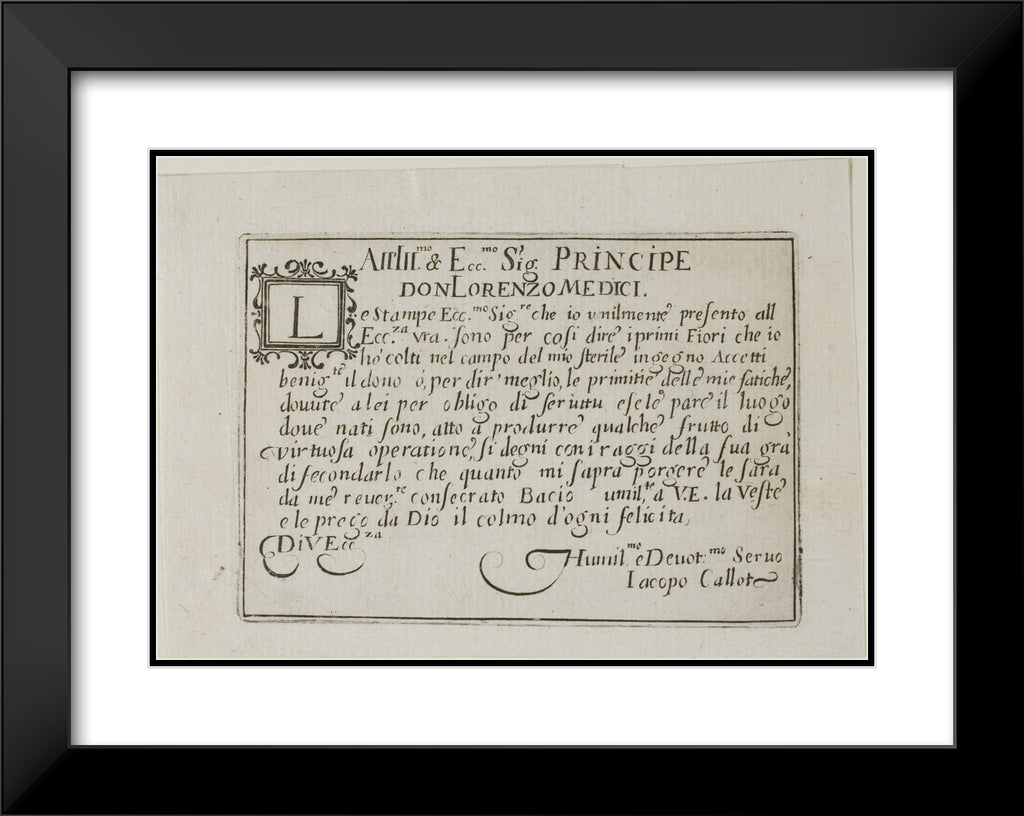 All Ill.mo & Ecc.mo Sig.r PRINCIPE
DON LORENZO MEDICI.
Le Stampe Ecc.mo Sig.re che io umilmente presento all
Ecc.za vra. sono per cosi dire i primi Fiori che io
ho colti nel campo del mio sterile ingegno Accetti
benig.te il dono ó, per dir meglio, le primitie delle mie fatiche,
douute a lei per obligo di seruitu e se le pare il luogo
doue nati sono, atto a produrre qualche frutto di
virtuosa operatione, si degni con i raggi della sua gra
di fecondarlo che quanto mi sapra porgere le sara
da me reuer.te consecrato Bacio umil.te a V.E. la Veste
e le prego da Dio il colmo d'ogni felicita,
Di V Ecc.za
Humil.mo e Deuot.mo Seruo
Iacopo Callot